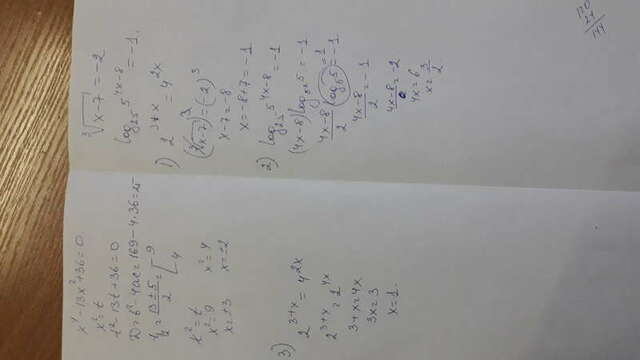 x⁴ - 13x² + 36 = 0
x² = t
t² - 13t + 36 = 0
D = b² - 4ac = 169 - 4·36 = 25
= (13 ± 5)/2 = [9
4
x² = 9 x² = 4
x = ±3 x = ±2
3)
2^(3+x) = 4^(2x)
2^(3+x) = 2^(4x)
3 + x = 4x
3x = 3
x = 1.
∛(x-7) = -2
log₂₅ 5^(4x-8) = -1.
2^(3+x) = 4^(2x)
1)
(∛(x-7))³ = (-2)³
x - 7 = -8
x = -8 + 7 = -1
2) log₂₅ 5^(4x-8) = -1
(4x-8) log 5 = -1
(4x-8)/2 log₅ 5 = -1
1
(4x-8)/2 = -1
4x-8 = -2
4x = 6
x = 3/2
144